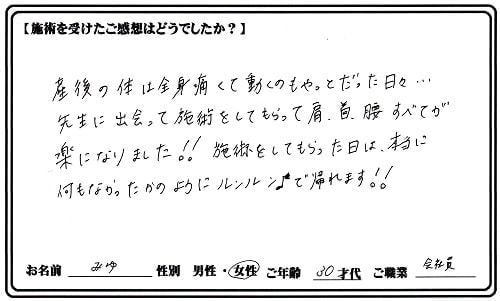 【施術を受けたご感想はどうでしたか？】
産後の体は全身痛くて動くのもやっとだった日々…
先生に出会って施術をしてもらって肩、首、腰すべてが
楽になりました!! 施術をしてもらった日は、本当に
何もなかったかのようにルンルン♪で帰れます!!
お名前 みゆ 性別 男性・女性 ご年齢 30才代 ご職業 会社員